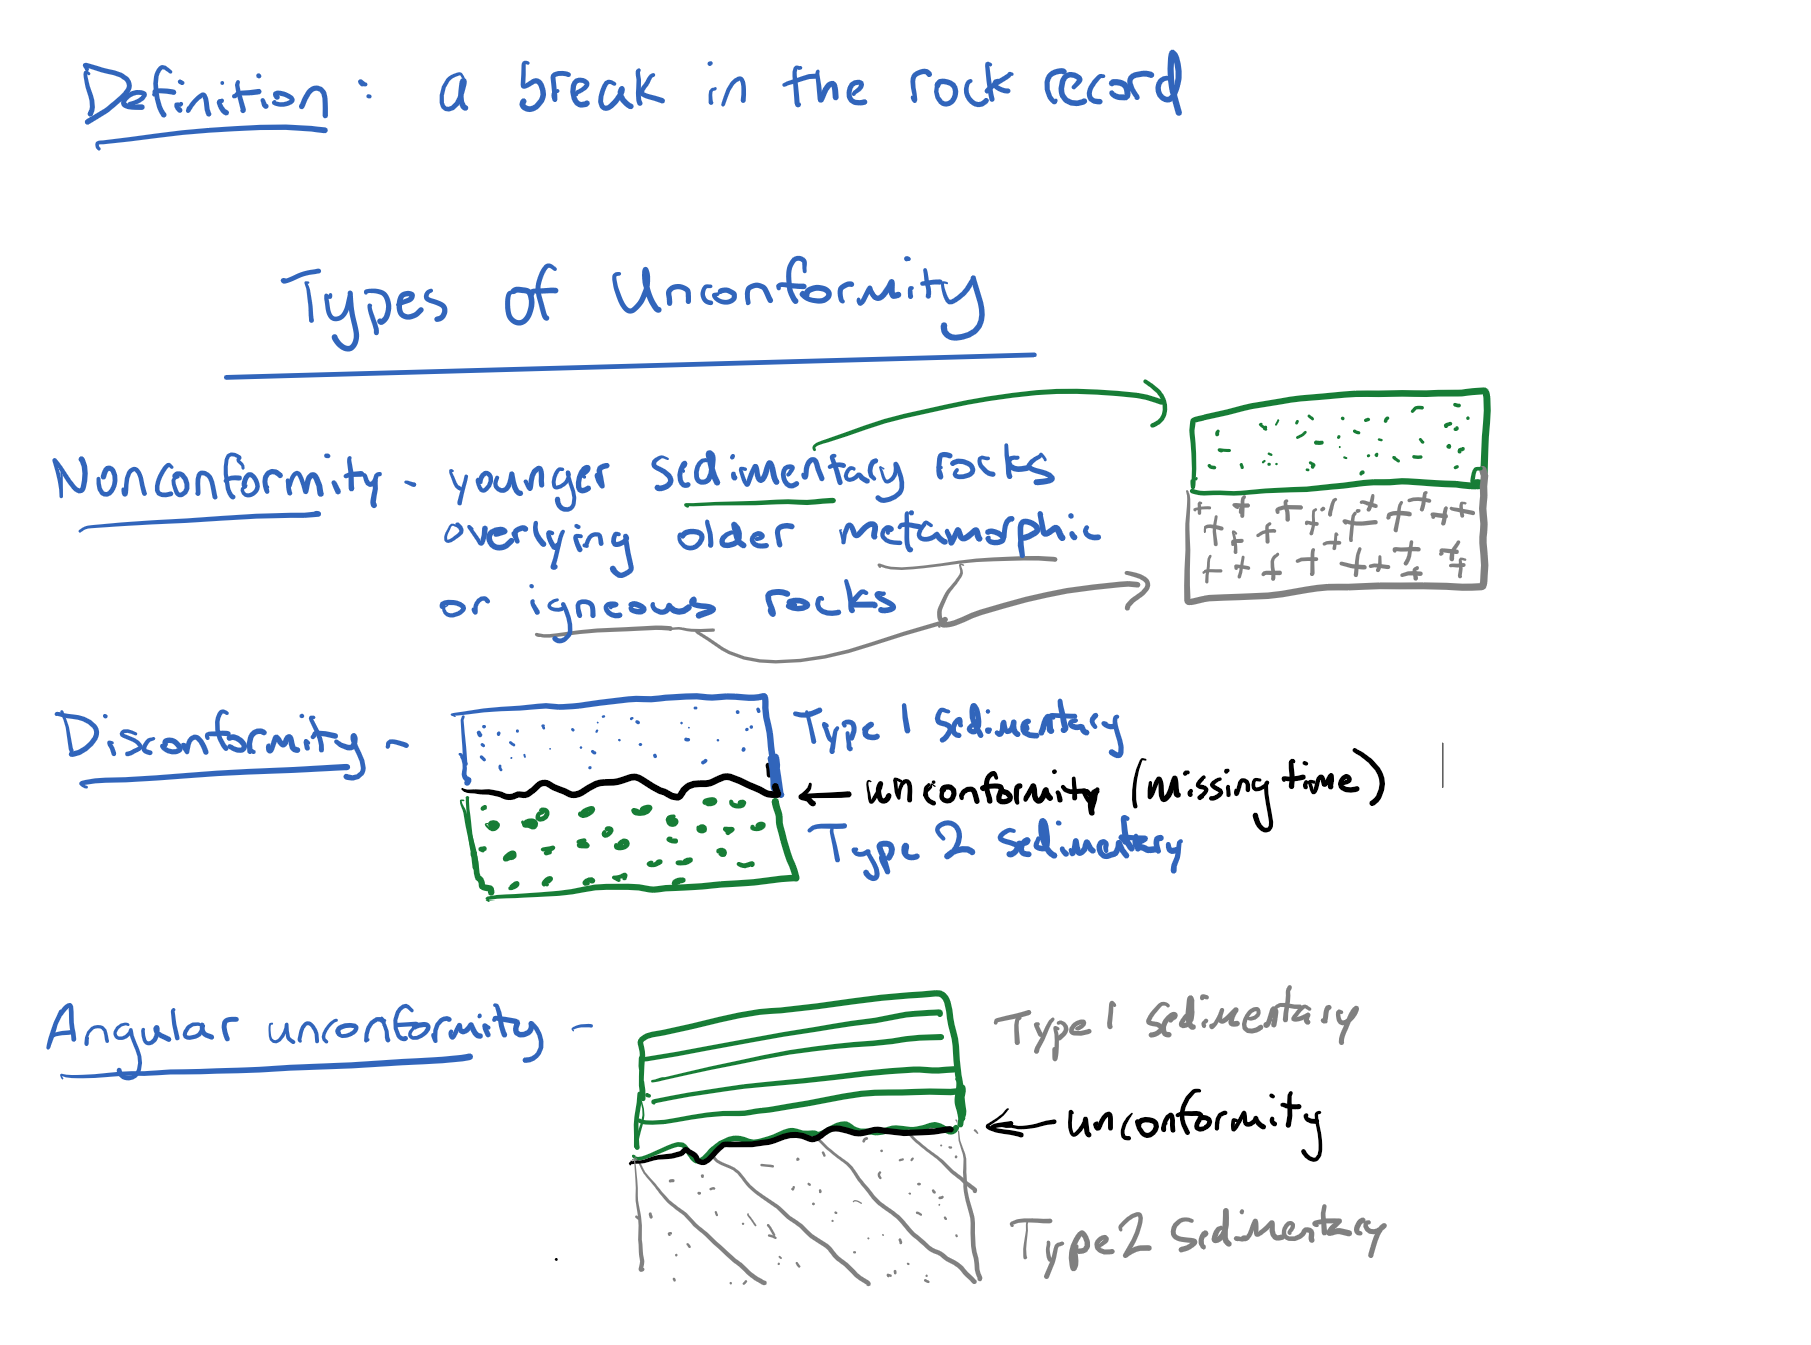 Definition: a break in the rock record
Types of Unconformity
Nonconformity - younger sedimentary rocks
overlying older metamorphic
or igneous rocks
Disconformity -
Type 1 sedimentary
unconformity (missing time)
Type 2 sedimentary
Angular unconformity -
Type 1 sedimentary
unconformity
Type 2 sedimentary